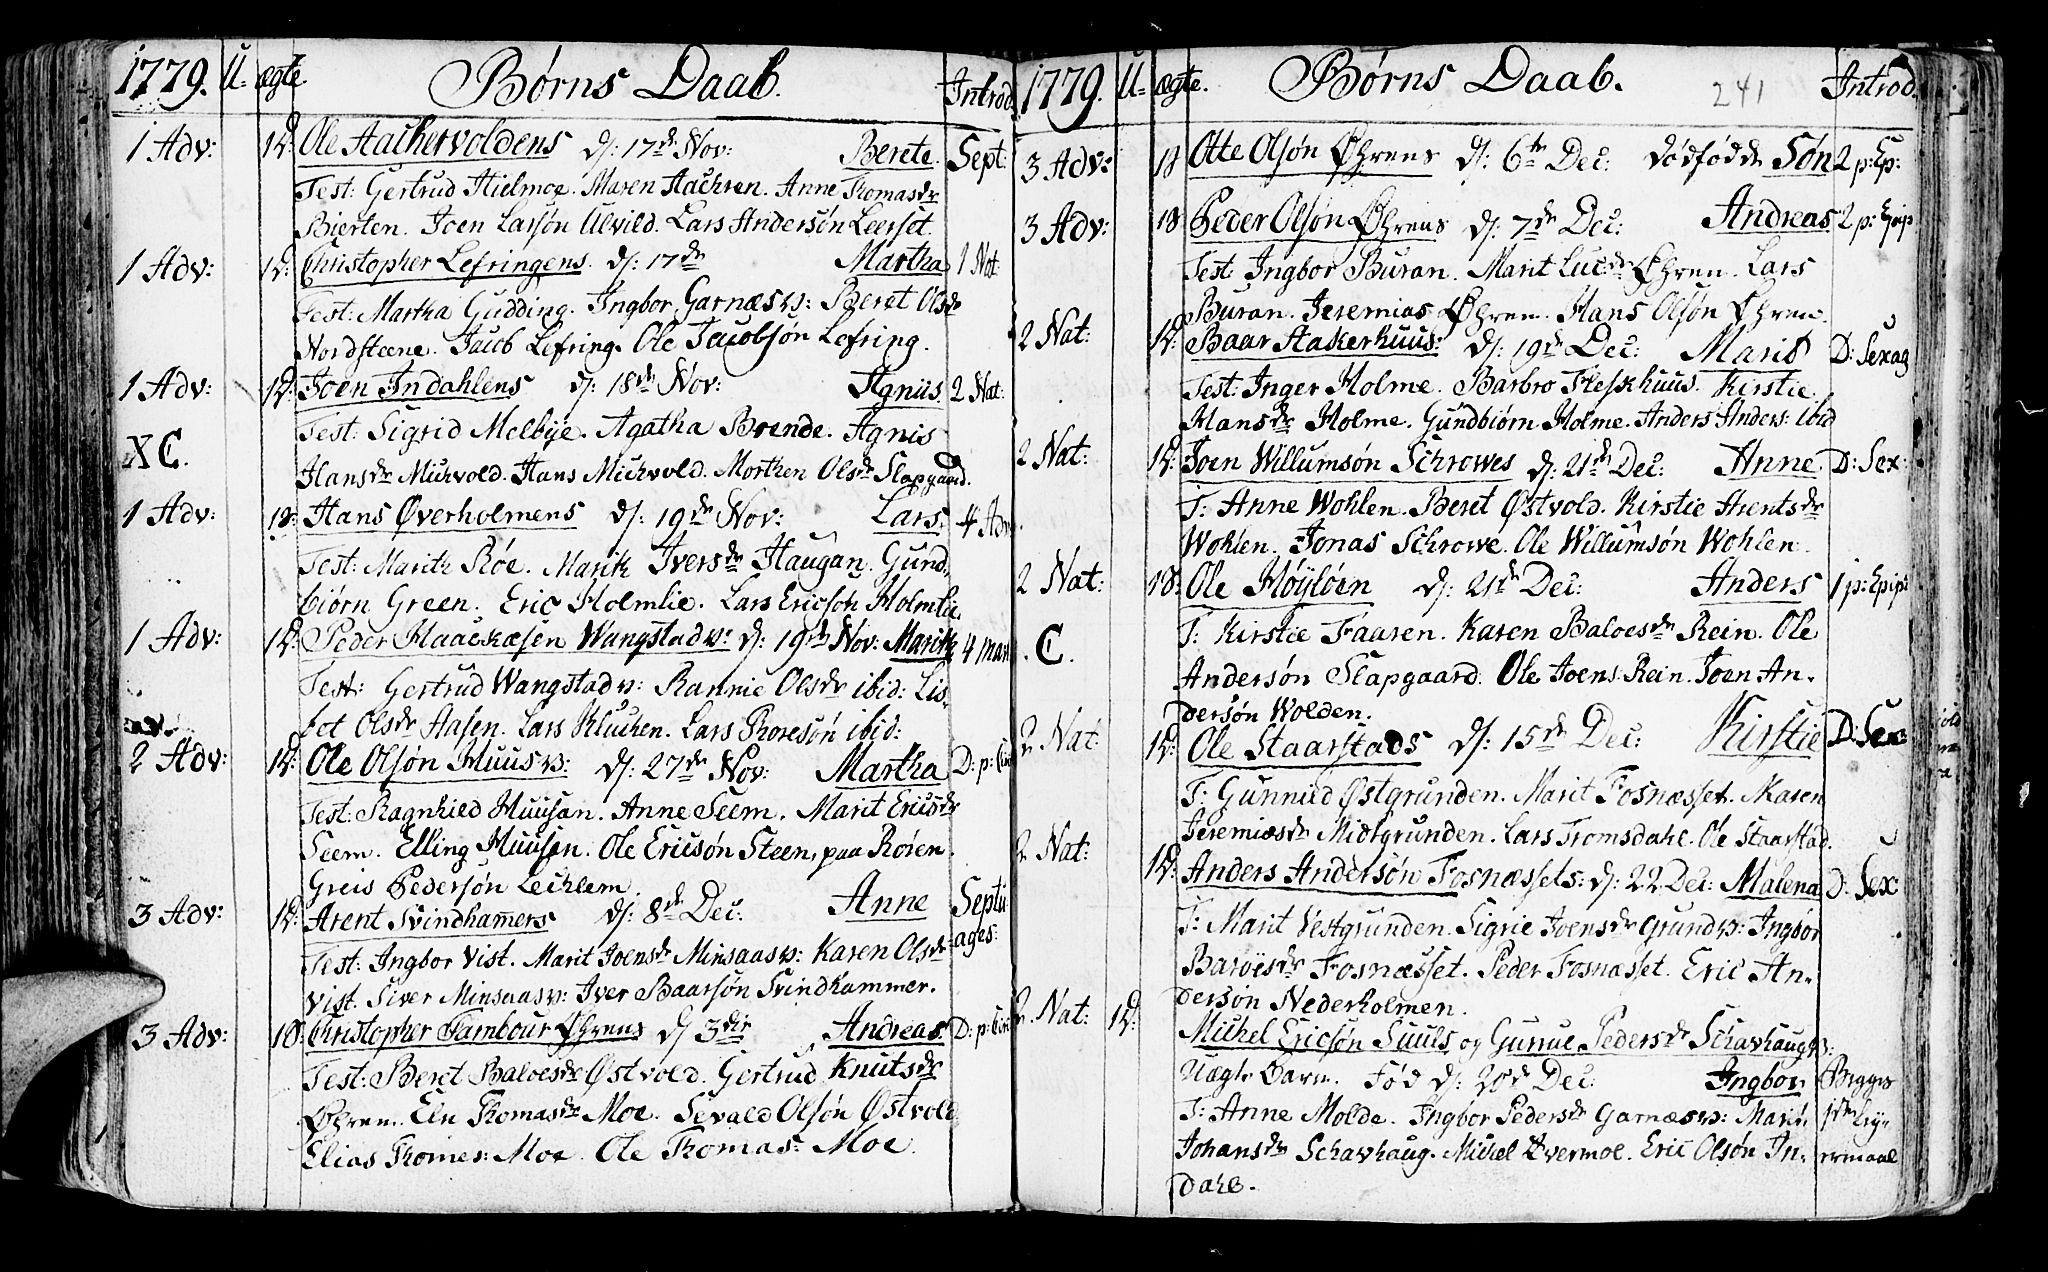 1779. U- ægte. Børns Daab. Introd.
1 Adv: 1D: Ole Aachervoldens d: 17de Nov: Berete. Sept:
Test: Gertrud Hielmoe. Maren Aachren. Anne Thomasdr
Bierten. Joen Larsøn Ulvild. Lars Andersøn Leerset.
1 Adv: 1D: Christopher Lefringens. d: 17de Martha 1 Nat:
Test: Martha Gudding. Ingbor Garnæsv: Beret Olsdr
Nordsteene. Jacob Lefring. Ole Jacobsøn Lefring.
1 Adv: 1D: Joen Indahlens d: 18de Nov: Agnis 2 Nat:
Test: Sigrid Melbye. Agatha Brende. Agnis
XC.
Hansdr Michvold. Hans Michvold. Morthen Olsdr Slapgaard.
1 Adv: 18: Hans Øverholmens d: 19de Nov: Lars. 4 Adv.
Test: Marith Røe. Marith Iversdr Haugan. Gund-
biørn Green. Eric Holmlie. Lars Ericsøn Holmlie.
1 Adv: 1D: Peder Haacksen Wangstadv: d: 19de Nov: Marith 4 man
Test: Gertrud Wangstadv: Rannie Olsdr ibid: Lis-
bet Olsdr Aasen. Lars Kluchen. Lars Thoresøn ibid:
2 Adv: 1D: Ole Olsøn Huusv: d: 27de Nov: Martha D: p:
Test: Ragnhied Huusan. Anne Seem. Marit Ericsdr
Seem. Elling Huusan. Ole Ericsøn Steen, paa Røren.
Greis Pedersøn Lechlem.
3 Adv: 1D: Arent Svindhamers d: 8de Dec: Anne Septu-
ages:
Test: Ingbor Vist. Marit Joensdr Minsaasv: Karen Olsdr
Vist. Siver Minsaasv: Iver Baarsøn Svindhammer.
3 Adv: 18: Christopher Tambour Øhrens d 3die Andreas. D: p:
Test: Beret Baloesdr Østvold. Gertrud Knutsdr
Øhren. Eln Thomasdr Moe. Sevald Olsøn Østvold.
Elias Thomes: Moe. Ole Thomas: Moe.
1779. U- ægte. Børns Daab. 241 Introd.
3 Adv: 18 Otte Olsøn Øhrens d: 6te Dec: dødfødde Søn 2 p: Ep:
3 Adv: 18 Peder Olsøn Øhrens d: 7de Dec: Andreas 2 p: Epip
Test: Ingbor Buran. Marit Lucdr Øhren. Lars
Buran. Jeremias Øhren. Hans Olsøn Øhren.
2 Nat: 1D: Baar Aakerhuus: d: 19de Dec: Marit D: Sexag
Test: Inger Holme. Barbro Fleskhuus. Kirstie
Hansdr Holme. Gundbiørn Holme. Anders Anders: ibid
2 Nat: 1D: Joen Willumsøn Schrowes d: 21de Dec: Anne. D: Sex:
T: Anne Wohlen. Beret Østvold. Kirstie Arentsdr
Wohlen. Jonas Schrowe. Ole Willumsøn Wohlen.
2 Nat: 18: Ole Høyløen d: 21de Dec: Anders 1 p: Epip:
T: Kirstie Faaren. Karen Baloesdr Rein. Ole
C.
Andersøn Slapgaard. Ole Joens: Rein. Joen An-
dersøn Wolden.
2 Nat: 1D: Ole Staarstads d: 15de Dec: Kirstie D: Sex:
T: Gunnild Østgrunden. Marit Fosnæsset. Karen
Jeremiæsdr Midtgrunden. Lars Tromsdahl. Ole Staarstad.
2 Nat: 1D: Anders Andersøn Fosnæssets: d: 22 Dec: Malena D: Sex:
T: Marit Vestgrunden. Sigrie Joensdr Grundv: Ingbor
Baroesdr Fosnæsset. Peder Fosnæsset. Eric An-
dersøn Nederholmen.
2. Nat: 1D: Michel Ericsøn Suuls og Guruel Pedersdr Schavhaugv:
Uægte Barn. Fød d: 20d Dec: Ingbor Begges
T: Anne Molde. Ingbor Pedersdr Garnæsv: Marit 1ste Ley-
Johansdr Schavhaug. Michel Tvermoe. Eric Olsøn In- ermaal
dahl.